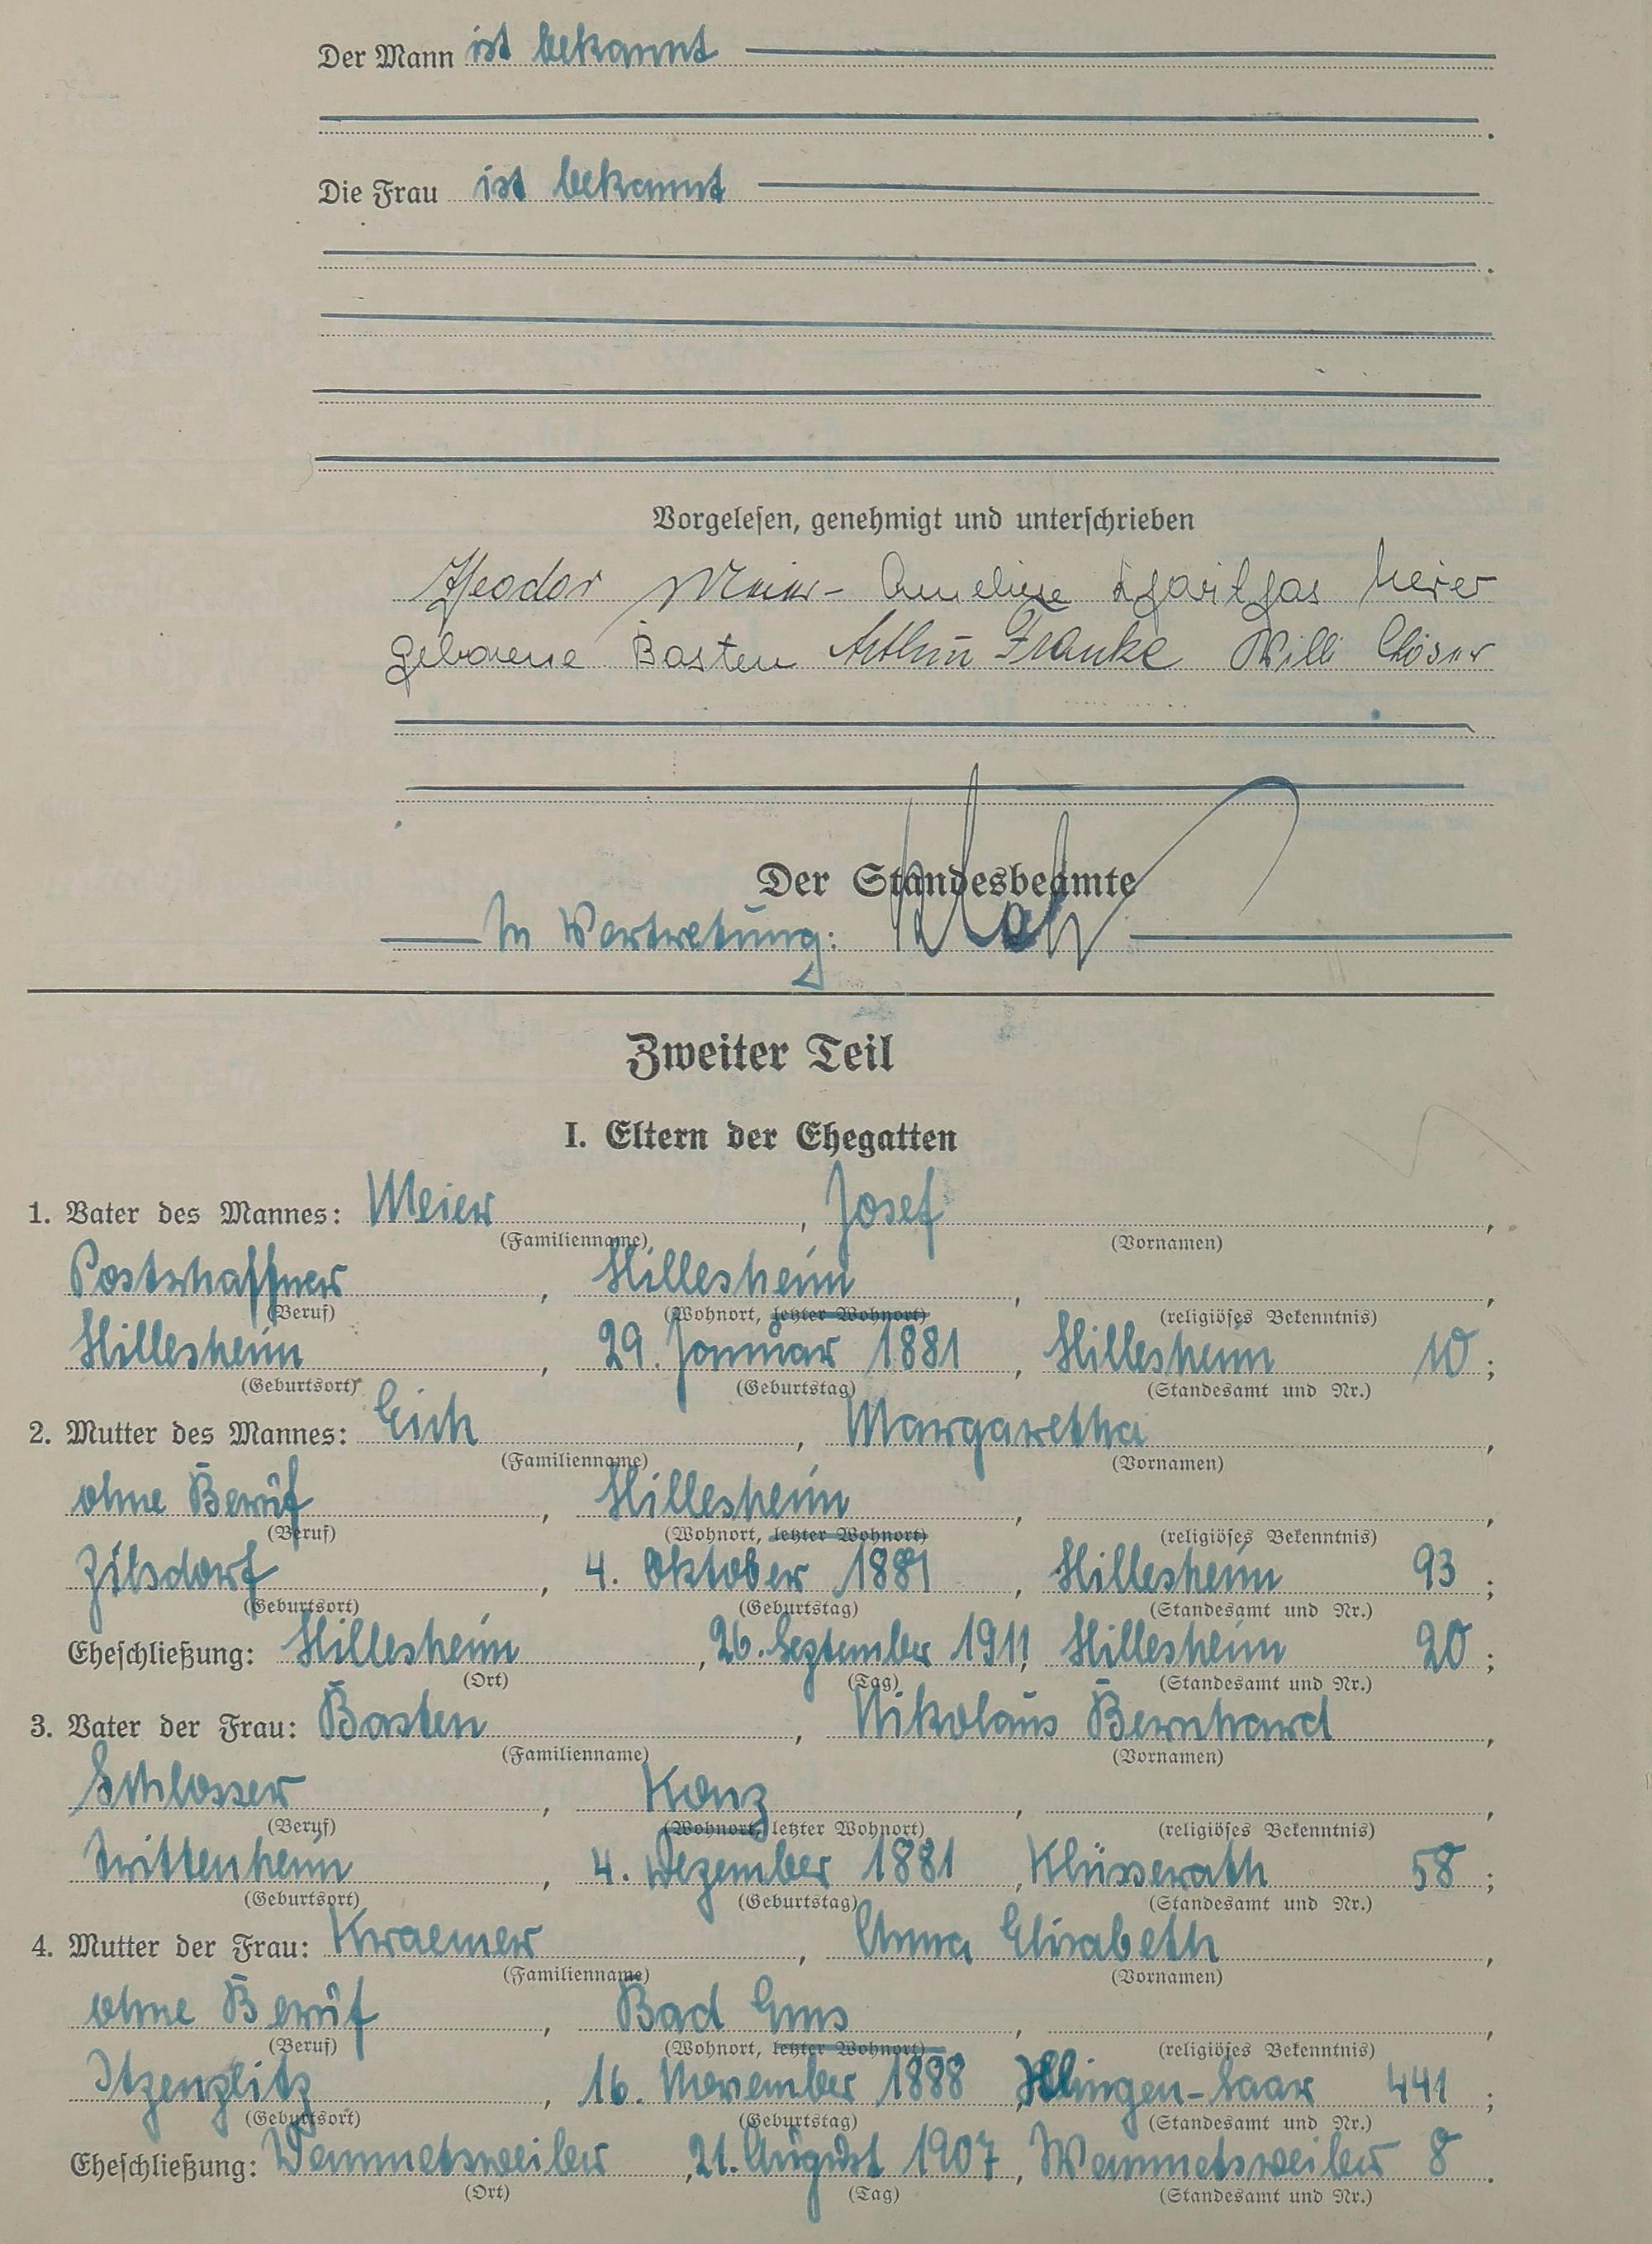 Der Mann ist bekannt
.
Die Frau ist bekannt
.
Vorgelesen, genehmigt und unterschrieben
Theodor Meier - Anneliese Meier
geborene Basten Arthur Franke Willi
Der Standesbeamte
In Vertretung:
Zweiter Teil
I. Eltern der Ehegatten
1. Vater des Mannes: Meier, Josef,
(Familienname) (Vornamen)
Postschaffner, Hillesheim, ,
(Beruf) (Wohnort, letzter Wohnort) (religiöses Bekenntnis)
Hillesheim, 29. Januar 1881, Hillesheim 10;
(Geburtsort) (Geburtstag) (Standesamt und Nr.)
2. Mutter des Mannes: Eich, Margaretha,
(Familienname) (Vornamen)
ohne Beruf, Hillesheim, ,
(Beruf) (Wohnort, letzter Wohnort) (religiöses Bekenntnis)
Zilsdorf, 4. Oktober 1881, Hillesheim 93;
(Geburtsort) (Geburtstag) (Standesamt und Nr.)
Eheschließung: Hillesheim, 26. September 1911, Hillesheim 20;
(Ort) (Tag) (Standesamt und Nr.)
3. Vater der Frau: Basten, Nikolaus Bernhard,
(Familienname) (Vornamen)
Schlosser, Konz, ,
(Beruf) (Wohnort, letzter Wohnort) (religiöses Bekenntnis)
Trittenheim, 4. Dezember 1881, Klüsserath 58;
(Geburtsort) (Geburtstag) (Standesamt und Nr.)
4. Mutter der Frau: Kraemer, Anna Elisabeth,
(Familienname) (Vornamen)
ohne Beruf, Bad Ems, ,
(Beruf) (Wohnort, letzter Wohnort) (religiöses Bekenntnis)
Itzenplitz, 16. November 1888, Illingen-Saar 441;
(Geburtsort) (Geburtstag) (Standesamt und Nr.)
Eheschließung: Wemmetsweiler, 21. August 1907, Wemmetsweiler 8.
(Ort) (Tag) (Standesamt und Nr.)